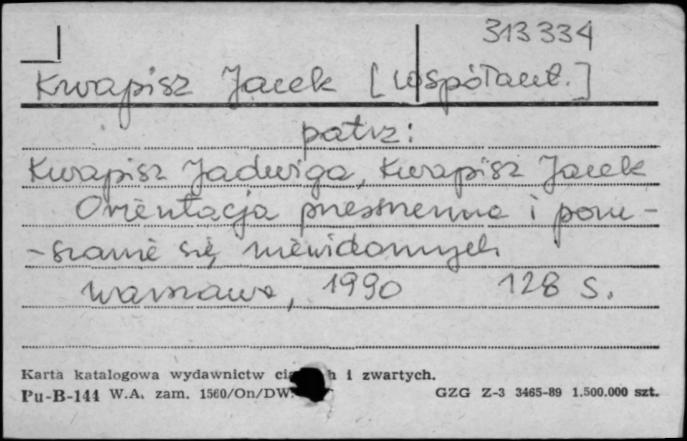 313334
Kwapisz Jacek [współaut.]
patrz:
Kwapisz Jadwiga, Kwapisz Jacek
Orientacja przestrzenna i poru-
-szanie się niewidomych
Warszawa, 1990 128 s.
Karta katalogowa wydawnictw i zwartych.
Pu-B-141 W.A. zam. 1560/On/DW. GZG Z-3 3465-89 1.500.000 szt.